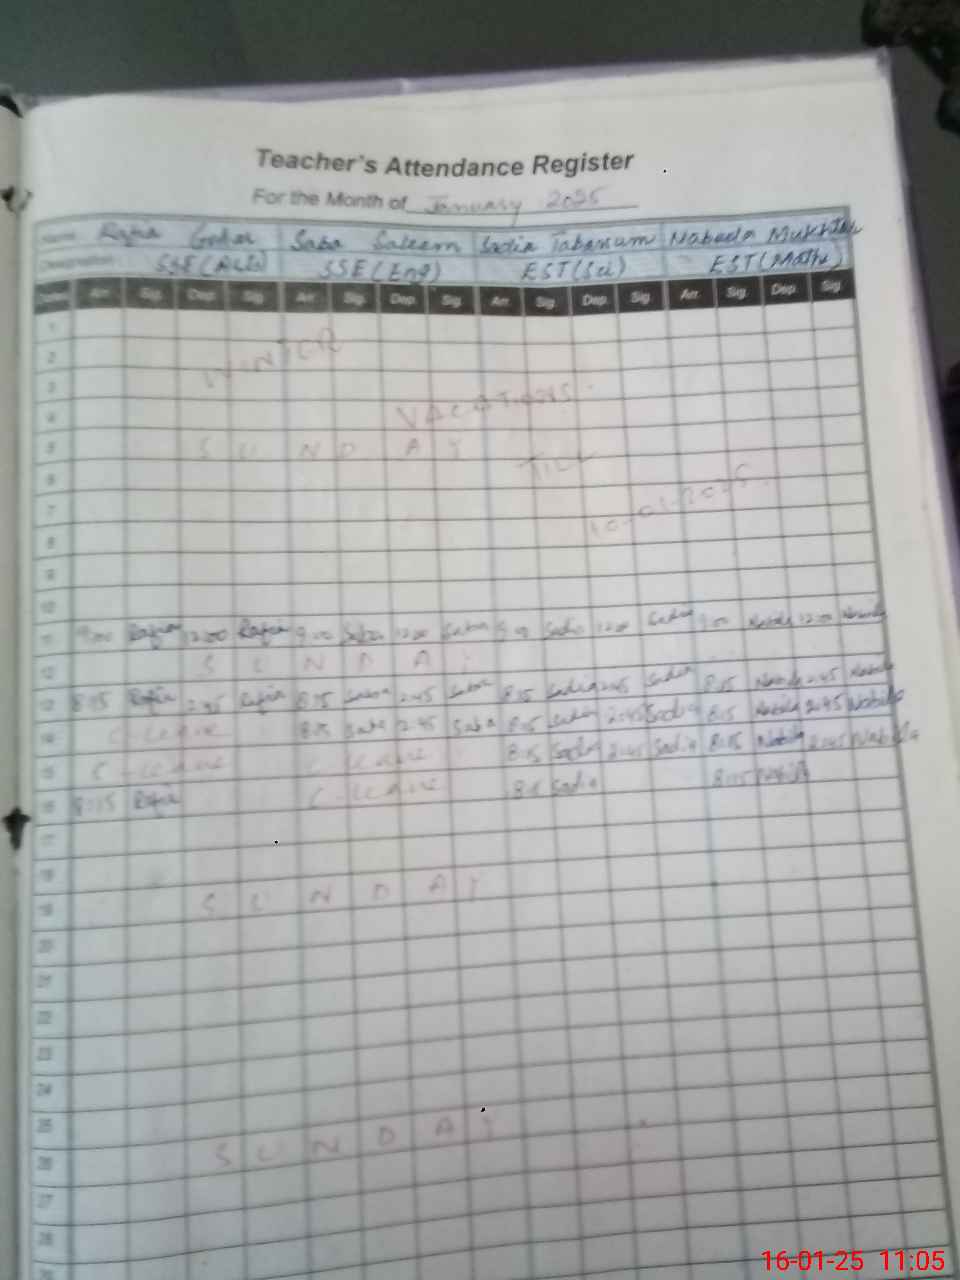 Teacher's Attendance Register
For the Month of January 2025
Name Rafia Gohar Saba Saleem Sadia Tabassum Nabeela Mukhtar
SSE (Eng) EST (Sci) EST (Maths)
Dates Arr. Sig. Dep. Sig. Arr. Sig. Dep. Sig. Arr. Sig. Dep. Sig. Arr. Sig. Dep. Sig.
1
2 WINTER
3
4 VACATIONS
5 SUNDAY
6 TILL
7
8 10-01-2025
9
10
11 9:00 Rafia 12:00 Rafia 9:00 Saba 12:00 Saba 9:00 Sadia 12:00 Sadia 9:00 Nabila 12:00 Nabila
12 SUNDAY
13 8:15 Rafia 2:45 Rafia 8:15 Saba 2:45 Saba 8:15 Sadia 2:45 Sadia 8:15 Nabila 2:45 Nabila
14 C-leave 8:15 Saba 2:45 Saba 8:15 Sadia 2:45 Sadia 8:15 Nabila 2:45 Nabila
15 C-leave C-leave 8:15 Sadia 2:45 Sadia 8:15 Nabila 2:45 Nabila
16 8:15 Rafia C-leave 8:15 Sadia 8:15 Nabila
17
18
19 SUNDAY
20
21
22
23
24
25
26 SUNDAY
27
28
16-01-25 11:05